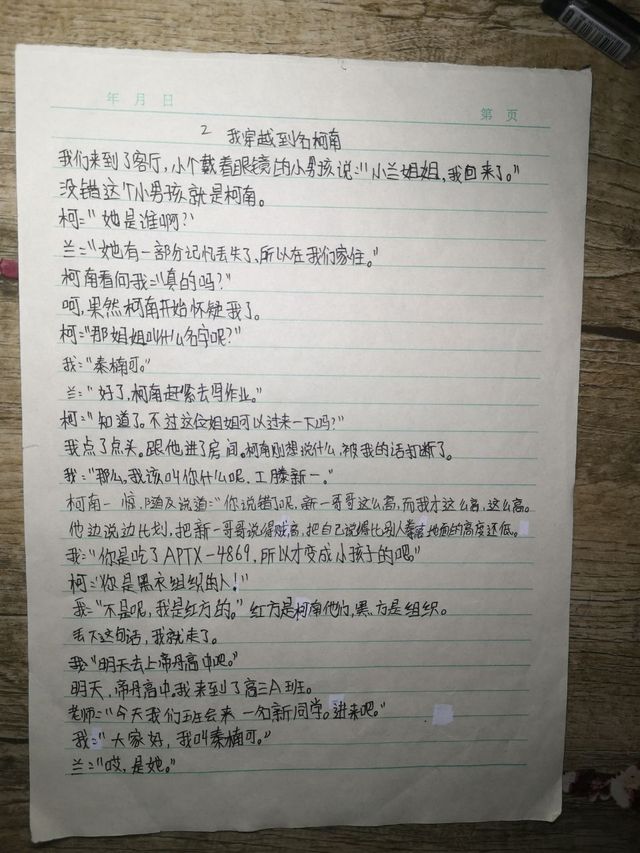 年 月 日
第 页
2 我穿越到名柯南
我们来到了客厅,小个戴着眼镜的小男孩说:"小兰姐姐,我回来了。"
没错这个小男孩就是柯南。
柯:"她是谁啊?"
兰:"她有一部分记忆丢失了,所以在我们家住。"
柯南看向我:"真的吗?"
呵,果然柯南开始怀疑我了。
柯:"那姐姐叫什么名字呢?"
我:"秦楠可。"
兰:"好了,柯南赶紧去写作业。"
柯:"知道了。不过这位姐姐可以过来一下吗?"
我点了点头。跟他进了房间。柯南刚想说什么,被我的话打断了。
我:"那么。我该叫你什么呢,工滕新一。"
柯南一惊,随及说道:"你说错了呢,新一哥哥这么高,而我才这么高,这么高。
他边说边比划,把新一哥哥说得贼高,把自己说得比别人离地面的高度还低。
我:"你是吃了APTX-4869,所以才变成小孩子的吧。"
柯:"你是黑衣组织的人!"
我:"不是呢,我是红方的。"红方是柯南他们,黑方是组织。
丢下这句话,我就走了。
我:"明天去上帝丹高中吧。"
明天,帝丹高中。我来到了高三A班。
老师:"今天我们班会来一名新同学。进来吧。"
我:"大家好,我叫秦楠可。"
兰:"哎,是她。"